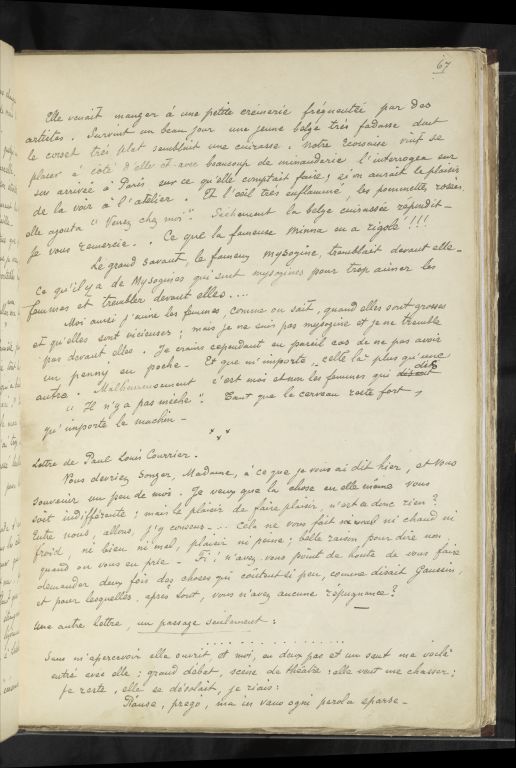 67
Elle venait manger à une petite crèmerie fréquentée par des
artistes. Survint un beau jour une jeune belge très fadasse dont
le corset très plat semblait une cuirasse. Notre Ecossaise vint se
placer à côté d'elle et avec beaucoup de minauderie l'interrogea sur
son arrivée à Paris sur ce qu'elle comptait faire; si on aurait le plaisir
de la voir à l'atelier. Et l'œil très enflammé, les pommettes roses,
elle ajouta "Venez chez moi". Sèchement la belge cuirassée répondit-
Je vous remercie.. Ce que la fameuse Minna en a rigolé!!!
Le grand savant, le fameux mysogine, tremblait devant elle-
Ce qu'il y a de Mysogines qui sont mysogines pour trop aimer les
femmes et trembler devant elles....
Moi aussi j'aime les femmes, comme on sait, quand elles sont grosses
et qu'elles sont vicieuses; mais je ne suis pas mysogine et je ne tremble
pas devant elles. Je crains cependant en pareil cas de ne pas avoir
un penny en poche. Et que m'importe celle là plus qu'une
autre. Malheureusement c'est moi et non les femmes qui disent dit
"Il n'y a pas mèche". Tant que le cerveau reste fort,
qu'importe le machin-
Lettre de Paul Louis Courrier.
Vous devriez songer, Madame, à ce que je vous ai dit hier, et vous
souvenir un peu de moi. Je veux que la chose en elle même vous
soit indifférente; mais le plaisir de faire plaisir, n'est-ce donc rien?
Entre nous, allons, j'y consens.... Cela ne vous fait ni chaud ni
froid, ni bien ni mal, plaisir ni peine; belle raison pour dire non
quand on vous en prie - Fi! n'avez vous point de honte de vous faire
demander deux fois des choses qui coûtent si peu, comme disait Gaussin,
et pour lesquelles, après tout, vous n'avez aucune répugnance?
Une autre lettre, un passage seulement:
. . . . . . . . . . . . . . . .
Sans m'apercevoir elle ouvrit et moi, en deux pas et un saut me voilà
entré avec elle; grand débat, scène de théâtre: elle veut me chasser;
je reste, elle se désolait, je riais:
Pianse, prego, ma in vano ogni parola sparse-